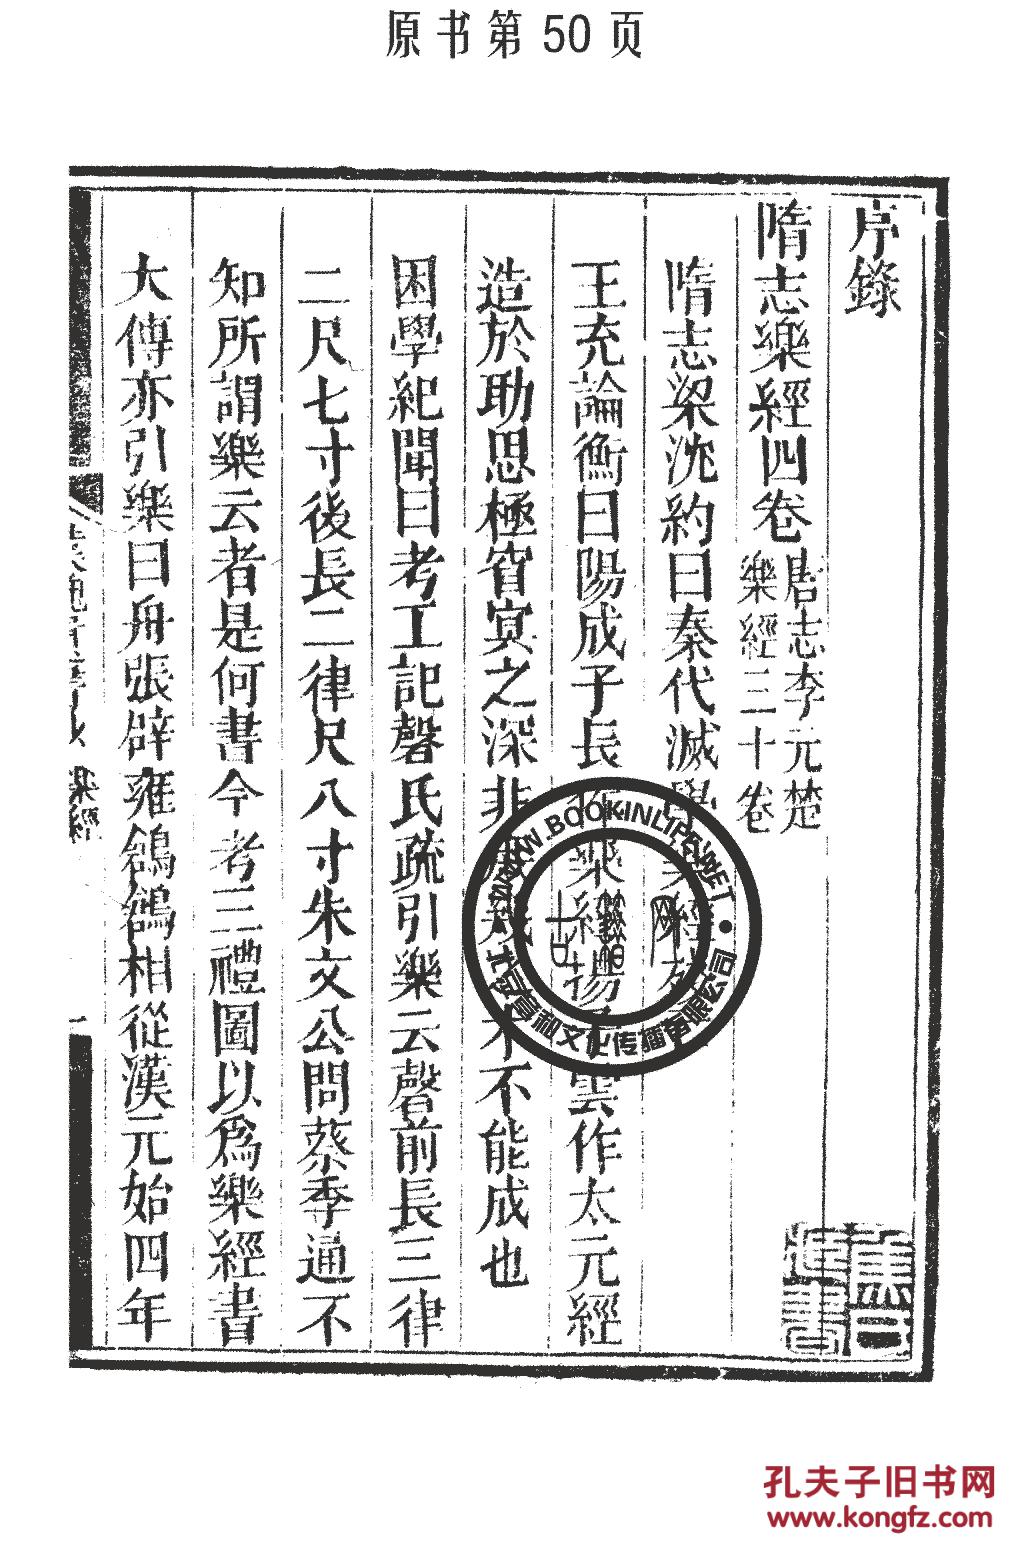 原书第50页
序錄
隋志樂經四卷 唐志李元楚樂經三十卷
隋志梁沈約曰秦代滅學
王充論衡曰陽成子長作樂經揚子雲作太元經
造於助思極窅冥之深非庶幾之才不能成也
困學紀聞曰考工記磬氏疏引樂云磬前長三律
二尺七寸後長二律尺八寸朱文公問蔡季通不
知所謂樂云者是何書今考三禮圖以爲樂經書
大傳亦引樂曰舟張辟雍鶬鶬相從漢元始四年
樂經
WWW.BOOKINLIFE.NET
孔夫子旧书网
www.kongfz.com